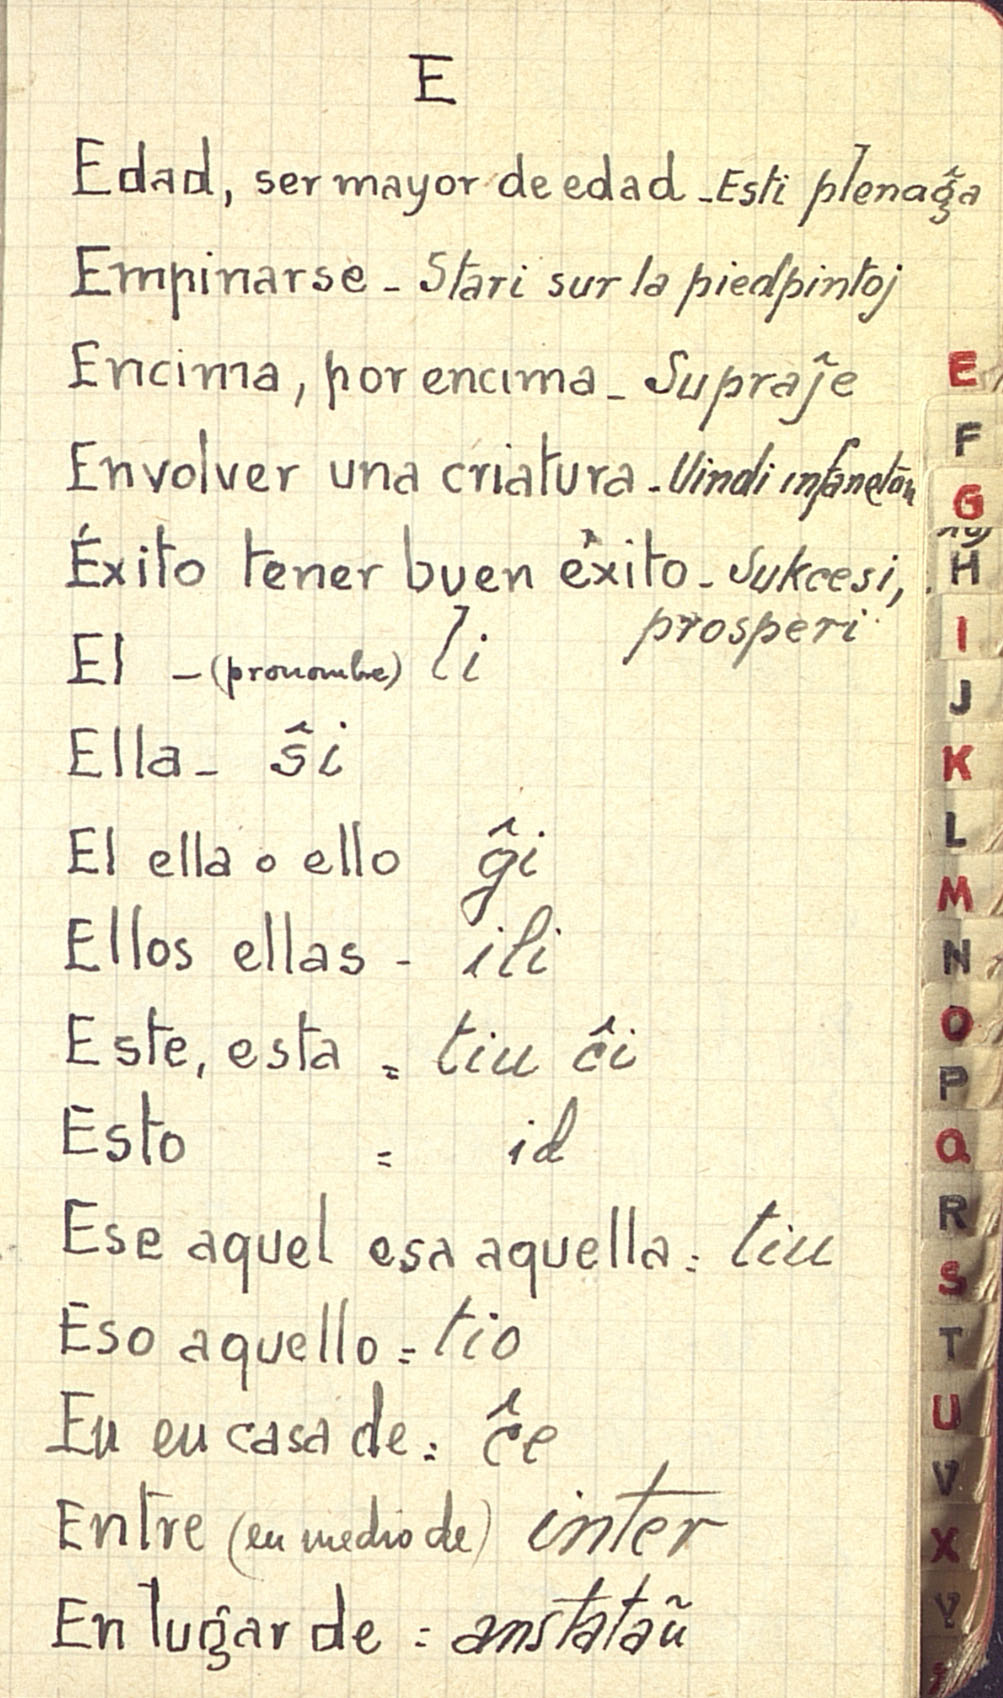 E
Edad, ser mayor de edad - Esti plenaĝa
Empinarse - Stari sur la piedpintoj
Encima, por encima - Supraĵe
Envolver una criatura - Vindi infaneton
Éxito tener buen éxito - Sukcesi,
prosperi
El - (pronombre) li
Ella - ŝi
El ella o ello ĝi
Ellos ellas - ili
Este, esta = tiu ĉi
Esto = id
Ese aquel esa aquella = tiu
Eso aquello = tio
En en casa de = ĉe
Entre (en medio de) inter
En lugar de = anstataŭ
E
F
G
H
I
J
K
L
M
N
O
P
Q
R
S
T
U
V
X
Y